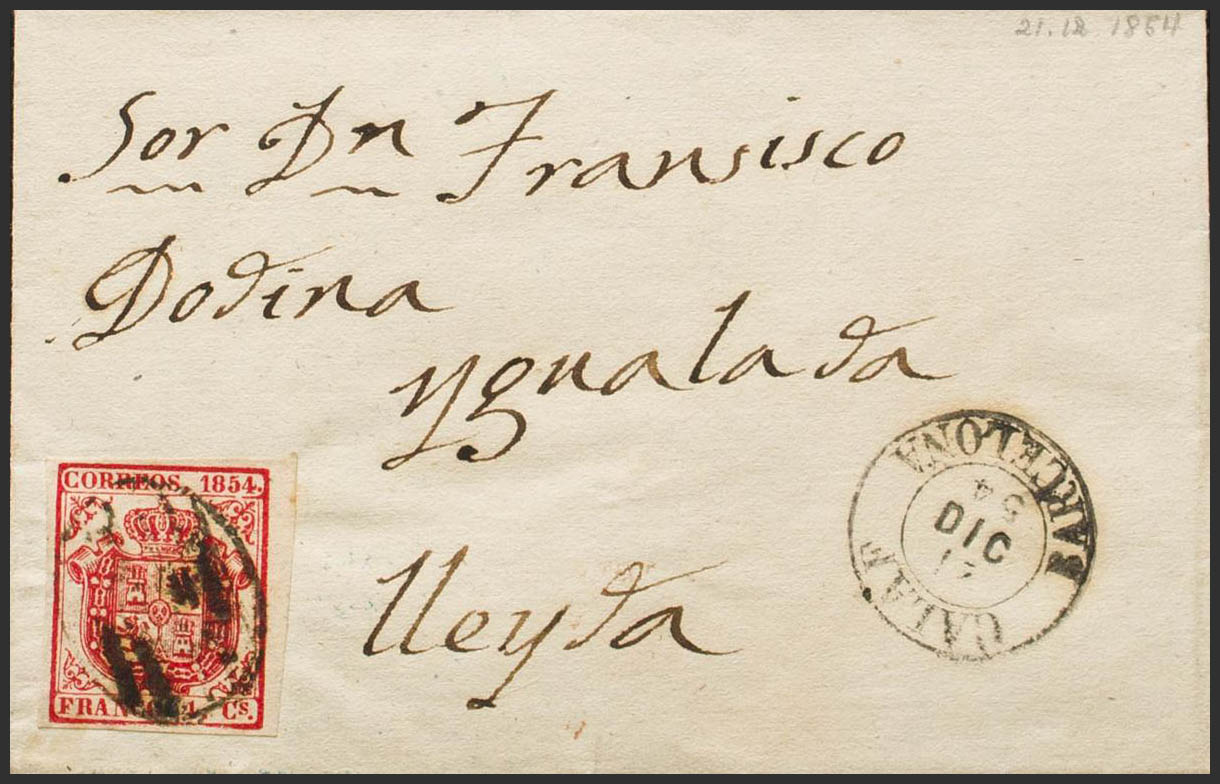 21.12 1854
Sor Dn Fransisco
Dodina
Ygualada
lleyda
CORREOS. 1854.
FRANCO. 4. Cs.
BARCELONA
54
DIC
CALAF